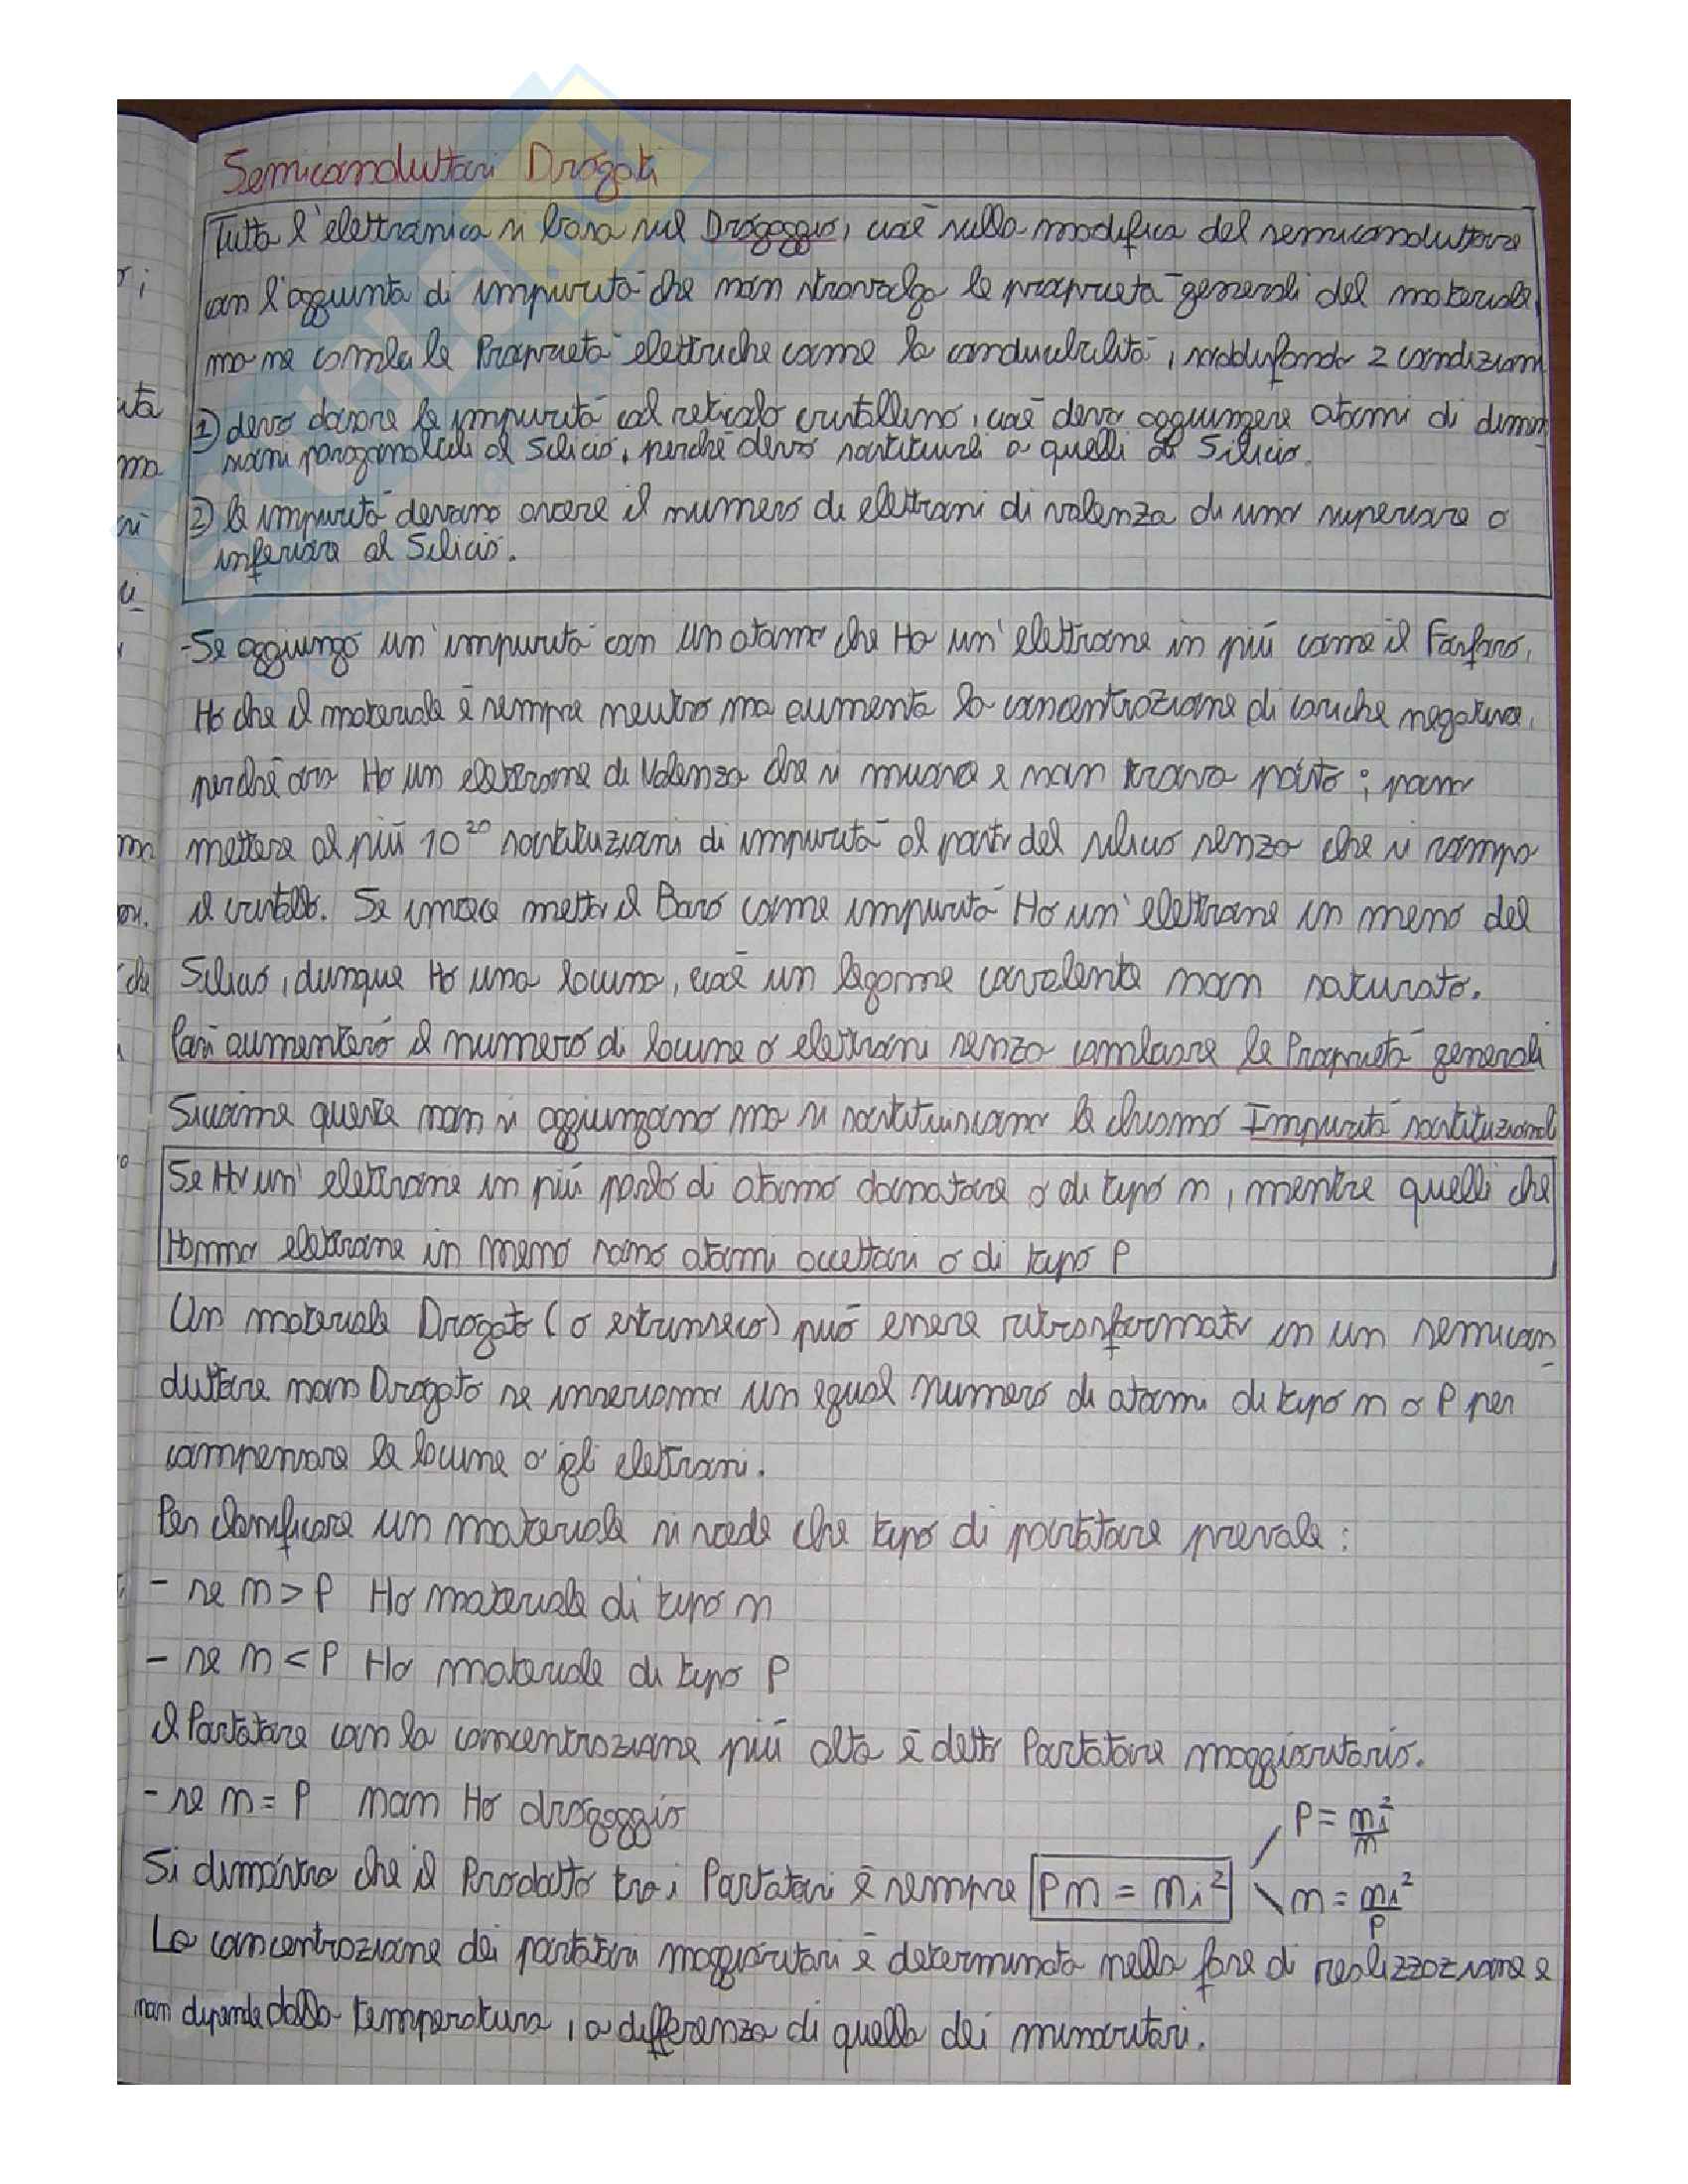 Semiconduttori Drogati
Tutta l'elettronica si basa sul Drogaggio, cioè sulla modifica del semiconduttore
con l'aggiunta di impurità che non stravolga le proprietà generali del materiale,
ma ne cambia le Proprietà elettriche come la conducibilità, soddisfando 2 condizioni
1) devo dosare le impurità al reticolo cristallino, cioè devo aggiungere atomi di dimen
sioni paragonabili al Silicio, perché devo sostituirli a quelli di Silicio.
2) le impurità devono avere il numero di elettroni di valenza di uno superiore o
inferiore al Silicio.
-Se aggiungo un'impurità con un atomo che Ho un'elettrone in più come il Fosforo,
Ho che il materiale è sempre neutro ma aumenta la concentrazione di cariche negative,
perché ora Ho un elettrone di Valenza che si muove e non trova posto; posso
mettere al più 10²⁰ sostituzioni di impurità al posto del silicio senza che si rompa
il cristallo. Se invece metto il Boro come impurità Ho un'elettrone in meno del
Silicio, dunque Ho una lacuna, cioè un legame covalente non saturato.
Così aumenterò il numero di lacune o elettroni senza cambiare le Proprietà generali
Siccome queste non si aggiungono ma si sostituiscono le chiamo Impurità sostituzionali
Se Ho un'elettrone in più parlo di atomo donatore o di tipo n, mentre quelli che
Hanno elettrone in meno sono atomi accettori o di tipo P
Un materiale Drogato (o estrinseco) può essere ritrasformato in un semicon
duttore non Drogato se inseriamo un egual numero di atomi di tipo n o P per
compensare le lacune o gli elettroni.
Per classificare un materiale si vede che tipo di portatore prevale:
- se n > P Ho materiale di tipo n
- se n < P Ho materiale di tipo P
il Portatore con la concentrazione più alta è detto Portatore maggioritario.
- se n = P non Ho drogaggio
P = ni²/n
Si dimostra che il Prodotto tra i Portatori è sempre Pn = ni² n = ni²/P
La concentrazione dei portatori maggioritari è determinata nella fase di realizzazione e
non dipende dalla temperatura, a differenza di quella dei minoritari.